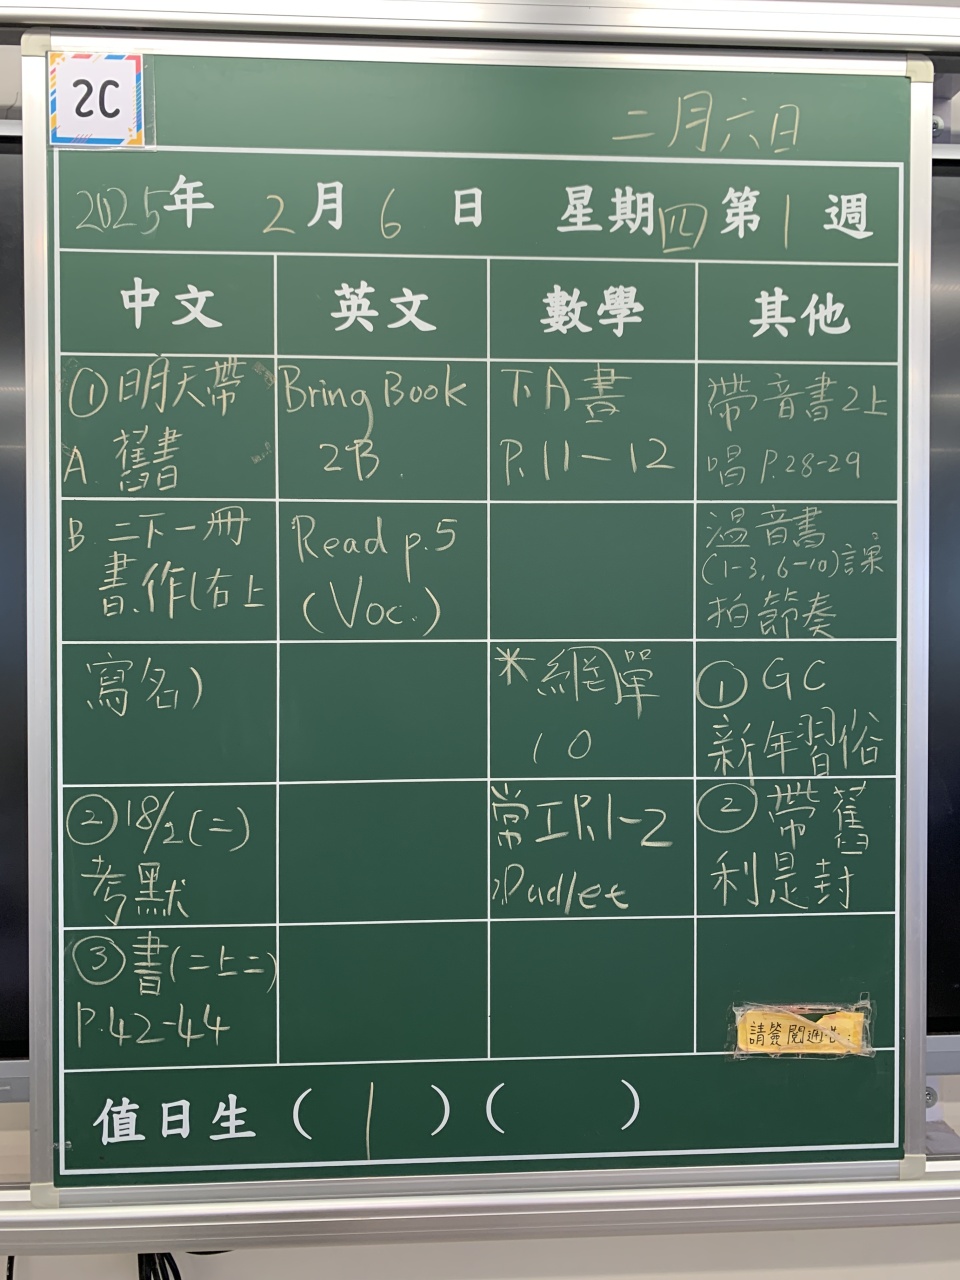 2C
二月六日
2025年 2月6日 星期四 第1週
中文
英文
數學
其他
①明天帶
A. 舊書
B. 二下一冊
書、作(右上
寫名)
②18/2(二)
考默
③書(二上二)
P.42-44
Bring Book
2B.
Read p.5
(Voc.)
下A書
P.11-12
*網單
10
常工P.1-2
Padlet
帶音書2上
唱 P.28-29
溫音書
(1-3, 6-10)課
拍節奏
①GC
新年習俗
②帶舊
利是封
請簽閱通告
值日生 ( 1 ) ( )